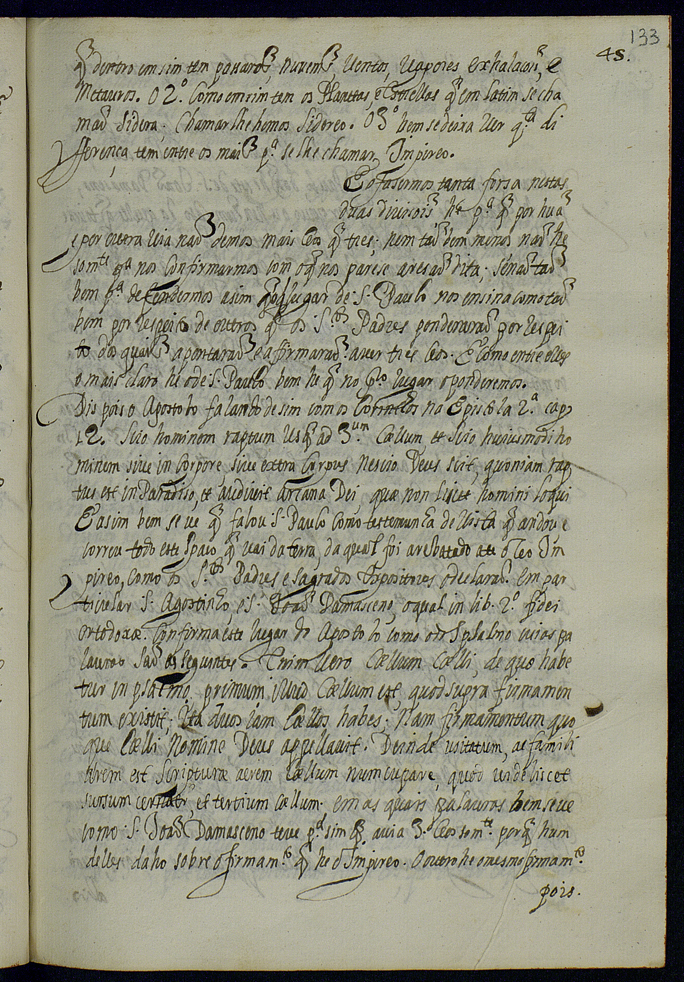 133
48.
q̃ dentro em sim tem passaros, nuvens, Ventos, Vapores exhalacois, e
Metauros. O 2º. Como em sim tem os Planetas, e Estrellas q̃ em latim se cha
maõ Sidera. Chamarlhe hemos Sidereo. O 3º bem se deixa ver q.ta di
fferença tem entre os mais p.a se lhe chamar Impireo.
E o fasermos tanta forsa nestas
duas divisois he p.a q̃ por huã
e por outra via naõ demos mais Ceos q̃ tres; nem taõ bem menos naõ he
som.te p.a nos Confirmarmos com o q̃ nos parese a resaõ dita; senaõ taõ
bem p.a defendermos asim o q̃ o lugar de S. Paulo nos ensina como taõ
bem por respeito de outros q̃ os S.tos Padres ponderaraõ por respei
to dos quais apontaraõ e affirmaraõ aver tres Ceos. E como entre elles
o mais claro he o de S. Paulo bem he q̃ no pr.o lugar o ponderemos.
Dis pois o Apostolo falando de sim com os Corinthos na Epistola 2.a cap.
12. Scio hominem raptum usq̃ ad 3.um Cœllum et Scio huiusmodi ho
minem sive in Corpore, sive extra Corpus Nescio Deus scit, quoniam rap
tus est in Paradiso, et audivit arcana Dei quæ non liscet homini loqui
E asim bem se ve q̃ falou S. Paulo como testemunha de vista q̃ andou e
correu todo este Espaco q̃ vai da terra, da qual foi arebattado ate o Ceo Im
pireo, como os S.tos Padres e sagrados Expositores o declaraõ. Em par
ticular S. Agostinho, e S. Joaõ Damasceno, o qual in lib. 2.o fidei
ortodoxæ. Confirma este lugar do Apostolo como o do Psalmo cuias pa
lauras saõ as seguintes. Enim Vero Cœllum Cœlli, de quo habe
tur in psalmo, primum illud Cœllum est, quod supra firmamen
tum existit; Ita duos iam Cœllos habes; Nam firmamentum quo
que Cœlli Nomine Deus appellavit. Deinde usitatum, ac famili
arem est Scripturæ aerem Cœllum nuncupare, quod videliscet
sursum cernatr, et tertium Cœllum. em as quais palavras bem se ve
como S. Joaõ Damasceno teve p.a sim q̃ avia 3. Ceos som.te porq̃ hum
delles da ho sobre o firmam.to q̃ he o Impireo. O outro he o mesmo firmam.to
pois.